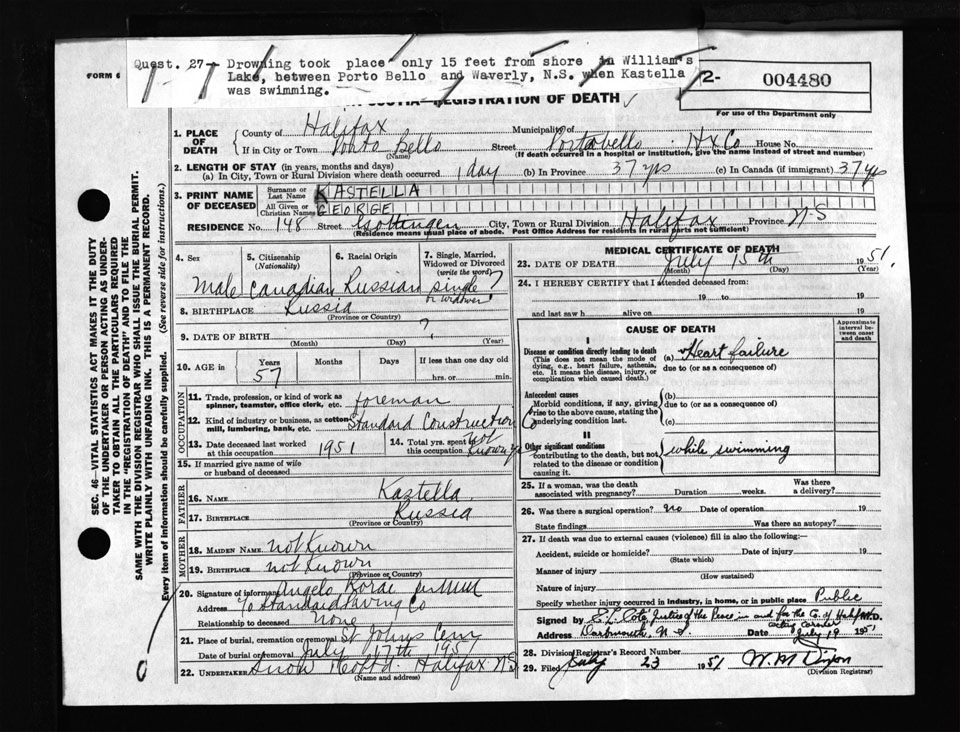 Quest. 27- Drowning took place only 15 feet from shore in William's
Lake, between Porto Bello and Waverly, N.S. when Kastella
was swimming.
FORM 6
2- 004480
SCOTIA—REGISTRATION OF DEATH
For use of the Department only
SEC. 46—VITAL STATISTICS ACT MAKES IT THE DUTY
OF THE UNDERTAKER OR PERSON ACTING AS UNDER-
TAKER TO OBTAIN ALL THE PARTICULARS REQUIRED
IN THE "REGISTRATION OF DEATH" AND TO FILE THE
SAME WITH THE DIVISION REGISTRAR WHO SHALL ISSUE THE BURIAL PERMIT.
WRITE PLAINLY WITH UNFADING INK. THIS IS A PERMANENT RECORD.
Every item of information should be carefully supplied. (See reverse side for instructions.)
1. PLACE OF DEATH
County of Halifax Municipality of Portobello Hx Co
If in City or Town Porto Bello Street House No.
(Name) (If death occurred in a hospital or institution, give the name instead of street and number)
2. LENGTH OF STAY (in years, months and days)
(a) In City, Town or Rural Division where death occurred 1 day (b) In Province 37 yrs (c) In Canada (if immigrant) 37 yrs
3. PRINT NAME OF DECEASED
Surname or Last Name KASTELLA
All Given or Christian Names GEORGE
RESIDENCE No. 148 Street Gottingen City, Town or Rural Division Halifax Province N-S
(Residence means usual place of abode. Post Office Address for residents in rural parts not sufficient)
4. Sex
5. Citizenship (Nationality)
6. Racial Origin
7. Single, Married, Widowed or Divorced (write the word)
Male Canadian Russian single ?
or widower
8. BIRTHPLACE Russia
(Province or Country)
9. DATE OF BIRTH ?
(Month) (Day) (Year)
10. AGE in Years Months Days If less than one day old
57 hrs. or min.
OCCUPATION
11. Trade, profession, or kind of work as spinner, teamster, office clerk, etc. foreman
12. Kind of industry or business, as cotton mill, lumbering, bank, etc. Standard Construction Co
13. Date deceased last worked at this occupation 1951
14. Total yrs. spent at this occupation Not Known yrs
15. If married give name of wife or husband of deceased
FATHER
16. NAME Kaztella
17. BIRTHPLACE Russia
(Province or Country)
MOTHER
18. MAIDEN NAME not Known
19. BIRTHPLACE not Known
(Province or Country)
20. Signature of informant Angelo
Address c/o Standard Paving Co
Relationship to deceased None
21. Place of burial, cremation or removal St Johns Cemy
Date of burial or removal July 17th 1951
22. UNDERTAKER Snow Co Ltd. Halifax NS
(Name and address)
MEDICAL CERTIFICATE OF DEATH
23. DATE OF DEATH July 15th 1951.
(Month) (Day) (Year)
24. I HEREBY CERTIFY that I attended deceased from:
19 to 19
and last saw h alive on 19
CAUSE OF DEATH
Approximate interval between onset and death
I
Disease or condition directly leading to death
(This does not mean the mode of dying, e.g., heart failure, asthenia, etc. It means the disease, injury, or complication which caused death.)
(a) Heart failure
due to (or as a consequence of)
Antecedent causes
Morbid conditions, if any, giving rise to the above cause, stating the underlying condition last.
(b)
due to (or as a consequence of)
(c)
II
Other significant conditions contributing to the death, but not related to the disease or condition causing it.
while swimming
25. If a woman, was the death associated with pregnancy? Duration weeks. Was there a delivery?
26. Was there a surgical operation? no Date of operation 19
State findings Was there an autopsy?
27. If death was due to external causes (violence) fill in also the following:—
Accident, suicide or homicide? Date of injury 19
(State which)
Manner of injury
(How sustained)
Nature of injury
Specify whether injury occurred in industry, in home, or in public place Public
Signed by E. L. Cote Justice of the Peace and for the M.D.
acting coroner
Address Dartmouth N. S. Date July 19 1951
28. Division Registrar's Record Number
29. Filed July 23 1951 W. M Dixon
(Division Registrar)